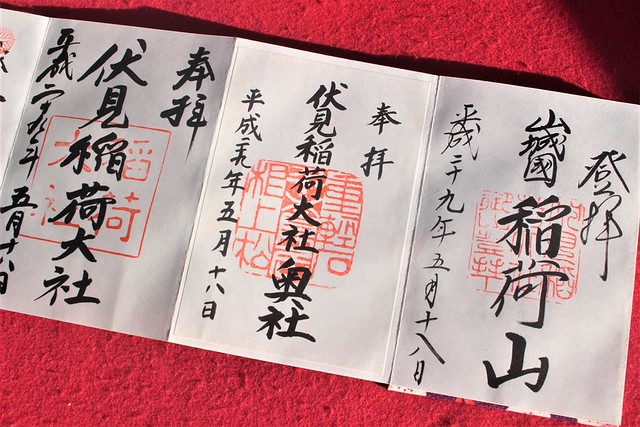 登拝
山城國
稲荷山
平成二十九年五月十八日
奉拝
伏見稲荷大社奥社
平成二九年五月十八日
重軽石
根上松
奉拝
伏見稲荷大社
平成二九年五月十八日
稲荷
大社